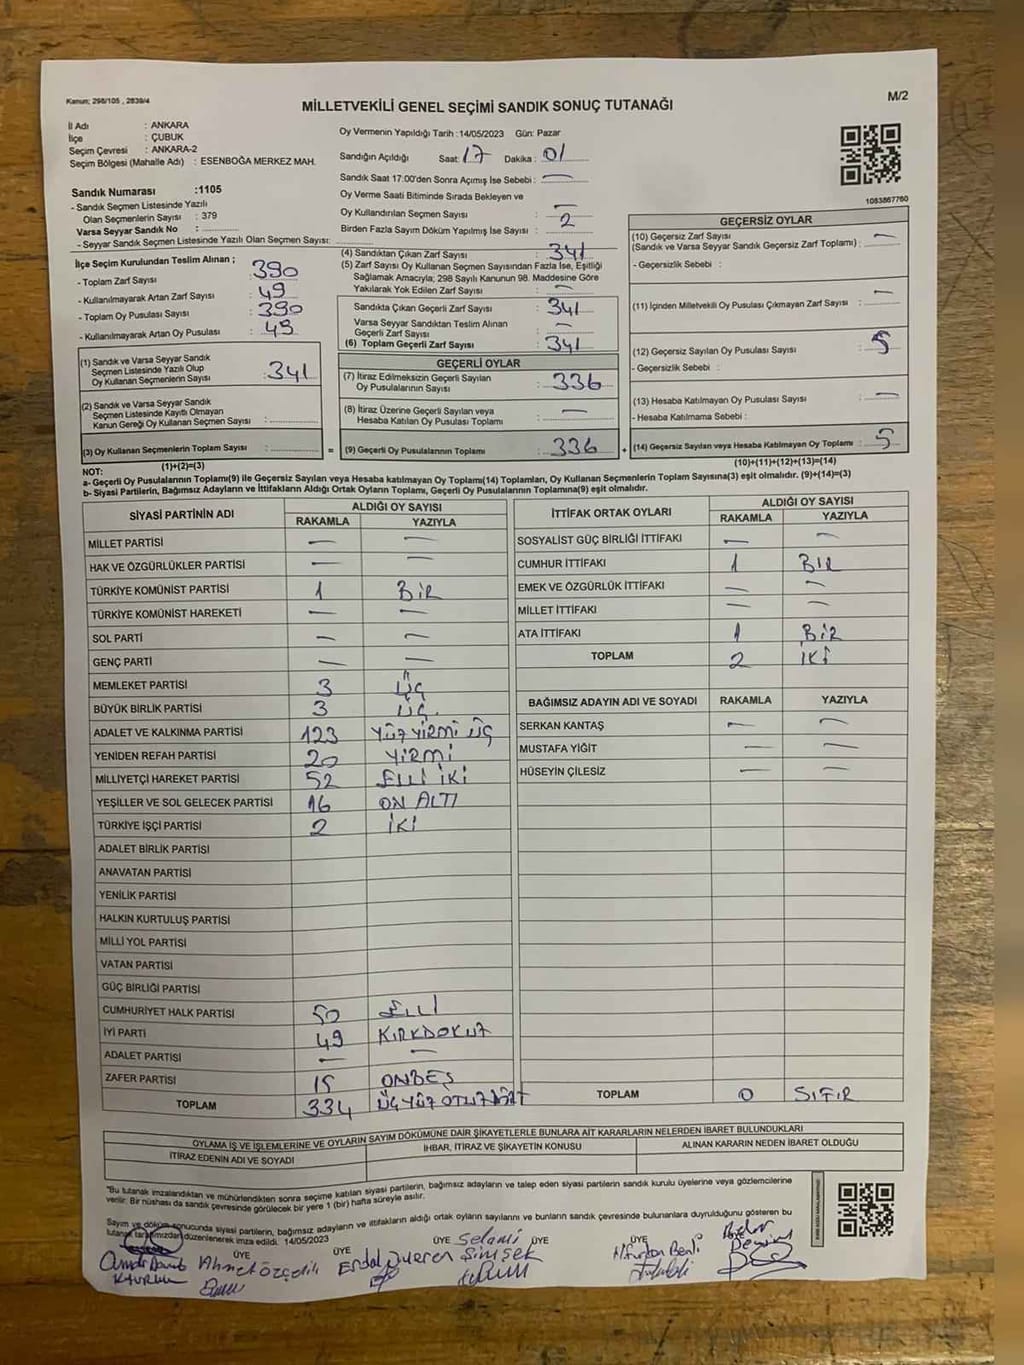 Kanun; 298/105 , 2839/4
MİLLETVEKİLİ GENEL SEÇİMİ SANDIK SONUÇ TUTANAĞI
M/2
İl Adı : ANKARA
İlçe : ÇUBUK
Seçim Çevresi : ANKARA-2
Seçim Bölgesi (Mahalle Adı) : ESENBOĞA MERKEZ MAH.
Sandık Numarası :1105
- Sandık Seçmen Listesinde Yazılı
Olan Seçmenlerin Sayısı : 379
Varsa Seyyar Sandık No :
- Seyyar Sandık Seçmen Listesinde Yazılı Olan Seçmen Sayısı:
Oy Vermenin Yapıldığı Tarih :14/05/2023 Gün: Pazar
Sandığın Açıldığı Saat: 17 Dakika : 01
Sandık Saat 17:00'den Sonra Açımış İse Sebebi : —
Oy Verme Saati Bitiminde Sırada Bekleyen ve
Oy Kullandırılan Seçmen Sayısı : —
Birden Fazla Sayım Döküm Yapılmış İse Sayısı : 2
1083867760
İlçe Seçim Kurulundan Teslim Alınan ;
- Toplam Zarf Sayısı : 390
- Kullanılmayarak Artan Zarf Sayısı : 49
- Toplam Oy Pusulası Sayısı : 390
- Kullanılmayarak Artan Oy Pusulası : 49
(1) Sandık ve Varsa Seyyar Sandık
Seçmen Listesinde Yazılı Olup
Oy Kullanan Seçmenlerin Sayısı :341
(2) Sandık ve Varsa Seyyar Sandık
Seçmen Listesinde Kayıtlı Olmayan
Kanun Gereği Oy Kullanan Seçmen Sayısı :
(3) Oy Kullanan Seçmenlerin Toplam Sayısı :
(1)+(2)=(3)
(4) Sandıktan Çıkan Zarf Sayısı : 341
(5) Zarf Sayısı Oy Kullanan Seçmen Sayısından Fazla İse, Eşitliği
Sağlamak Amacıyla; 298 Sayılı Kanunun 98. Maddesine Göre
Yakılarak Yok Edilen Zarf Sayısı : —
Sandıkta Çıkan Geçerli Zarf Sayısı : 341
Varsa Seyyar Sandıktan Teslim Alınan
Geçerli Zarf Sayısı : —
(6) Toplam Geçerli Zarf Sayısı : 341
GEÇERLİ OYLAR
(7) İtiraz Edilmeksizin Geçerli Sayılan
Oy Pusulalarının Sayısı : 336
(8) İtiraz Üzerine Geçerli Sayılan veya
Hesaba Katılan Oy Pusulaları Toplamı : —
= (9) Geçerli Oy Pusulalarının Toplamı : 336 +
GEÇERSİZ OYLAR
(10) Geçersiz Zarf Sayısı
(Sandık ve Varsa Seyyar Sandık Geçersiz Zarf Toplamı) : —
- Geçersizlik Sebebi :
(11) İçinden Milletvekili Oy Pusulası Çıkmayan Zarf Sayısı : —
(12) Geçersiz Sayılan Oy Pusulası Sayısı : 5
- Geçersizlik Sebebi :
(13) Hesaba Katılmayan Oy Pusulası Sayısı : —
- Hesaba Katılmama Sebebi :
(14) Geçersiz Sayılan veya Hesaba Katılmayan Oy Toplamı : 5
(10)+(11)+(12)+(13)=(14)
NOT:
a- Geçerli Oy Pusulaları Toplamı(9) ile Geçersiz Sayılan veya Hesaba katılmayan Oy Toplamı(14) Toplamları, Oy Kullanan Seçmenlerin Toplam Sayısına(3) eşit olmalıdır. (9)+(14)=(3)
b- Siyasi Partilerin, Bağımsız Adayların ve İttifakların Aldığı Ortak Oyların Toplamı, Geçerli Oy Pusulalarının Toplamına(9) eşit olmalıdır.
SİYASİ PARTİNİN ADI ALDIĞI OY SAYISI
RAKAMLA YAZIYLA
MİLLET PARTİSİ — —
HAK VE ÖZGÜRLÜKLER PARTİSİ — —
TÜRKİYE KOMÜNİST PARTİSİ 1 BİR
TÜRKİYE KOMÜNİST HAREKETİ — —
SOL PARTİ — —
GENÇ PARTİ — —
MEMLEKET PARTİSİ 3 ÜÇ
BÜYÜK BİRLİK PARTİSİ 3 ÜÇ
ADALET VE KALKINMA PARTİSİ 123 YÜZ YİRMİ ÜÇ
YENİDEN REFAH PARTİSİ 20 YİRMİ
MİLLİYETÇİ HAREKET PARTİSİ 52 ELLİ İKİ
YEŞİLLER VE SOL GELECEK PARTİSİ 16 ON ALTI
TÜRKİYE İŞÇİ PARTİSİ 2 İKİ
ADALET BİRLİK PARTİSİ
ANAVATAN PARTİSİ
YENİLİK PARTİSİ
HALKIN KURTULUŞ PARTİSİ
MİLLİ YOL PARTİSİ
VATAN PARTİSİ
GÜÇ BİRLİĞİ PARTİSİ
CUMHURİYET HALK PARTİSİ 50 ELLİ
İYİ PARTİ 49 KIRKDOKUZ
ADALET PARTİSİ — —
ZAFER PARTİSİ 15 ONBEŞ
TOPLAM 334 ÜÇ YÜZ OTUZ DÖRT
İTTİFAK ORTAK OYLARI ALDIĞI OY SAYISI
RAKAMLA YAZIYLA
SOSYALİST GÜÇ BİRLİĞİ İTTİFAKI — —
CUMHUR İTTİFAKI 1 BIR
EMEK VE ÖZGÜRLÜK İTTİFAKI — —
MİLLET İTTİFAKI — —
ATA İTTİFAKI 1 BİR
TOPLAM 2 İKİ
BAĞIMSIZ ADAYIN ADI VE SOYADI RAKAMLA YAZIYLA
SERKAN KANTAŞ — —
MUSTAFA YİĞİT — —
HÜSEYİN ÇİLESİZ — —
TOPLAM 0 SIFIR
OYLAMA İŞ VE İŞLEMLERİNE VE OYLARIN SAYIM DÖKÜMÜNE DAİR ŞİKAYETLERLE BUNLARA AİT KARARLARIN NELERDEN İBARET BULUNDUKLARI
İTİRAZ EDENİN ADI VE SOYADI İHBAR, İTİRAZ VE ŞİKAYETİN KONUSU ALINAN KARARIN NEDEN İBARET OLDUĞU
"Bu tutanak imzalandıktan ve mühürlendikten sonra seçime katılan siyasi partilerin, bağımsız adayların ve talep eden siyasi partilerin sandık kurulu üyelerine veya gözlemcilerine
verilir. Bir nüshası da sandık çevresinde görülecek bir yere 1 (bir) hafta süreyle asılır.
Sayım ve döküm sonucunda siyasi partilerin, bağımsız adayların ve ittifakların aldığı ortak oyların sayılarını ve bunların sandık çevresinde bulunanlara duyrulduğunu gösteren bu
tutanak tarafımızdan düzenlenerek imza edildi. 14/05/2023
ÜYE ÜYE ÜYE ÜYE ÜYE
Ahmet Özçelik
Erdal Düeren
Selami Şimşek